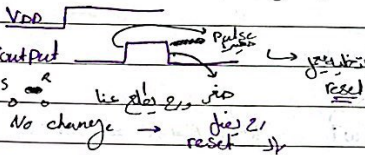 VDD
output pulse صغير
reset
S R صفر ورح يطلع عنا
No change → رح نعمل
reset